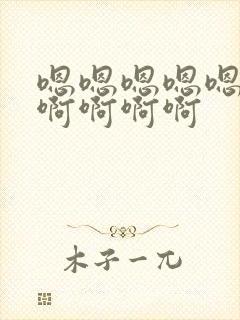 嗯嗯嗯嗯嗯
啊啊啊啊
木子一兀